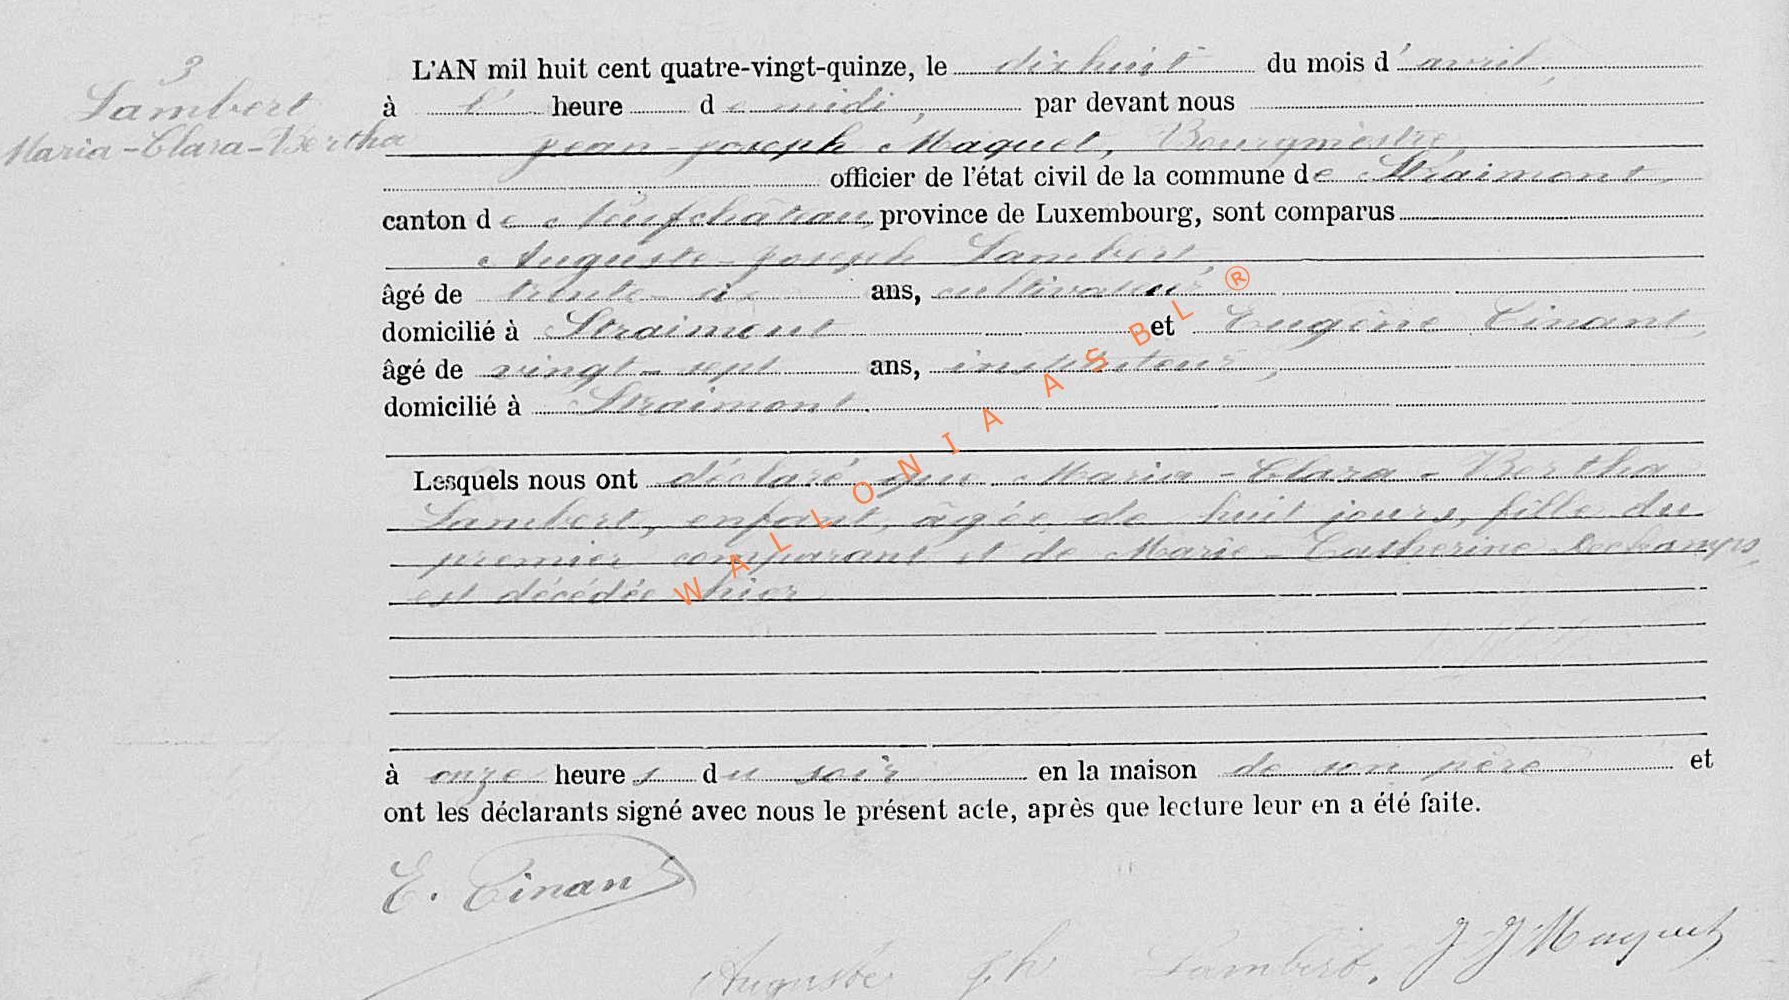 3
Lambert
Maria-Clara-Bertha
L'AN mil huit cent quatre-vingt-quinze, le dixhuit du mois d'avril,
à l' heure de midi, par devant nous
Jean-Joseph Maquet, Bourgmestre,
officier de l'état civil de la commune de Straimont,
canton de Neufchâteau, province de Luxembourg, sont comparus
Auguste-Joseph Lambert,
âgé de trente- ans, cultivateur
domicilié à Straimont et Eugène Tinant,
âgé de vingt-sept ans, instituteur,
domicilié à Straimont.
Lesquels nous ont déclaré que Maria-Clara-Bertha
Lambert, enfant, âgée de huit jours, fille du
premier comparant et de Marie-Catherine Dechamps,
est décédée hier
à onze heures du soir en la maison de son père et
ont les déclarants signé avec nous le présent acte, après que lecture leur en a été faite.
E. Tinant
Auguste Jph Lambert.
J J Maquet
WALLONIA ASBL ®